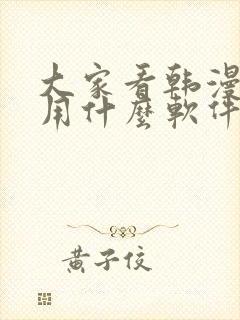 大家看韩漫
用什麼軟件
黄子佼